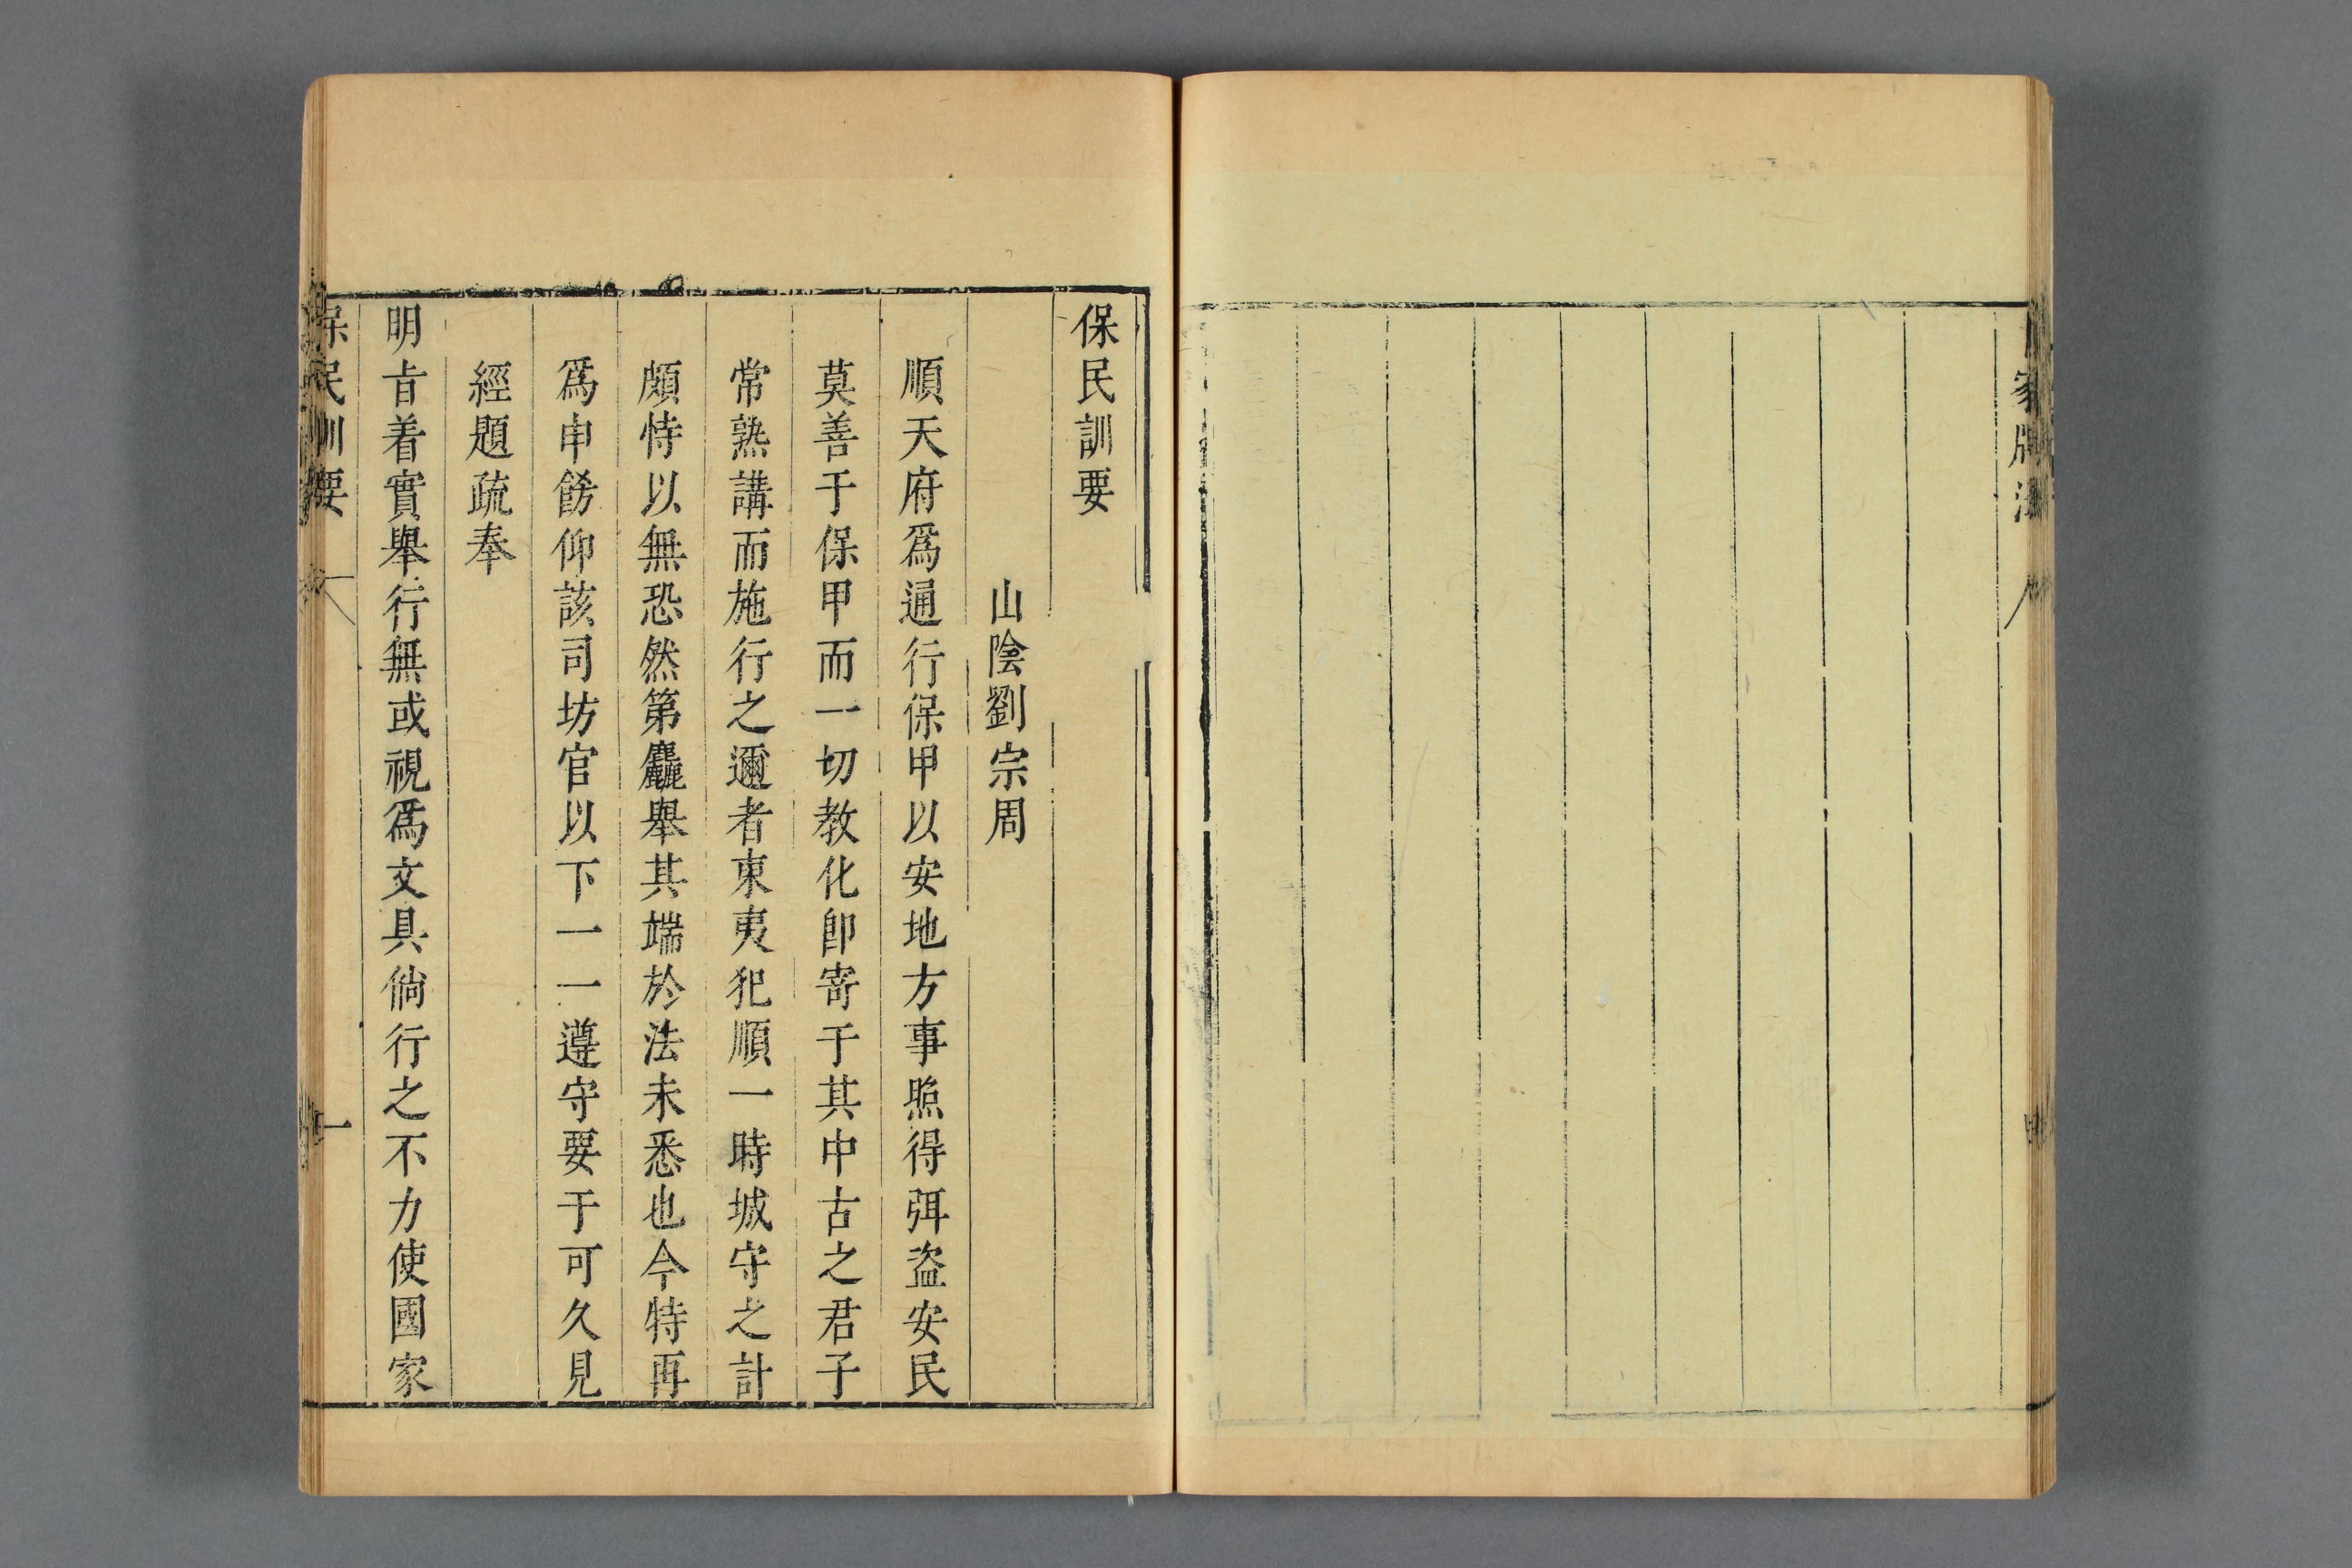 家牌法
保民訓要
山陰劉宗周
順天府爲通行保甲以安地方事照得弭盗安民
莫善于保甲而一切教化卽寄于其中古之君子
常熟講而施行之邇者東夷犯順一時城守之計
頗恃以無恐然第麤舉其端於法未悉也今特再
爲申飭仰該司坊官以下一一遵守要于可久見
經題疏奉
明旨着實舉行無或視爲文具倘行之不力使國家
保民訓要
一